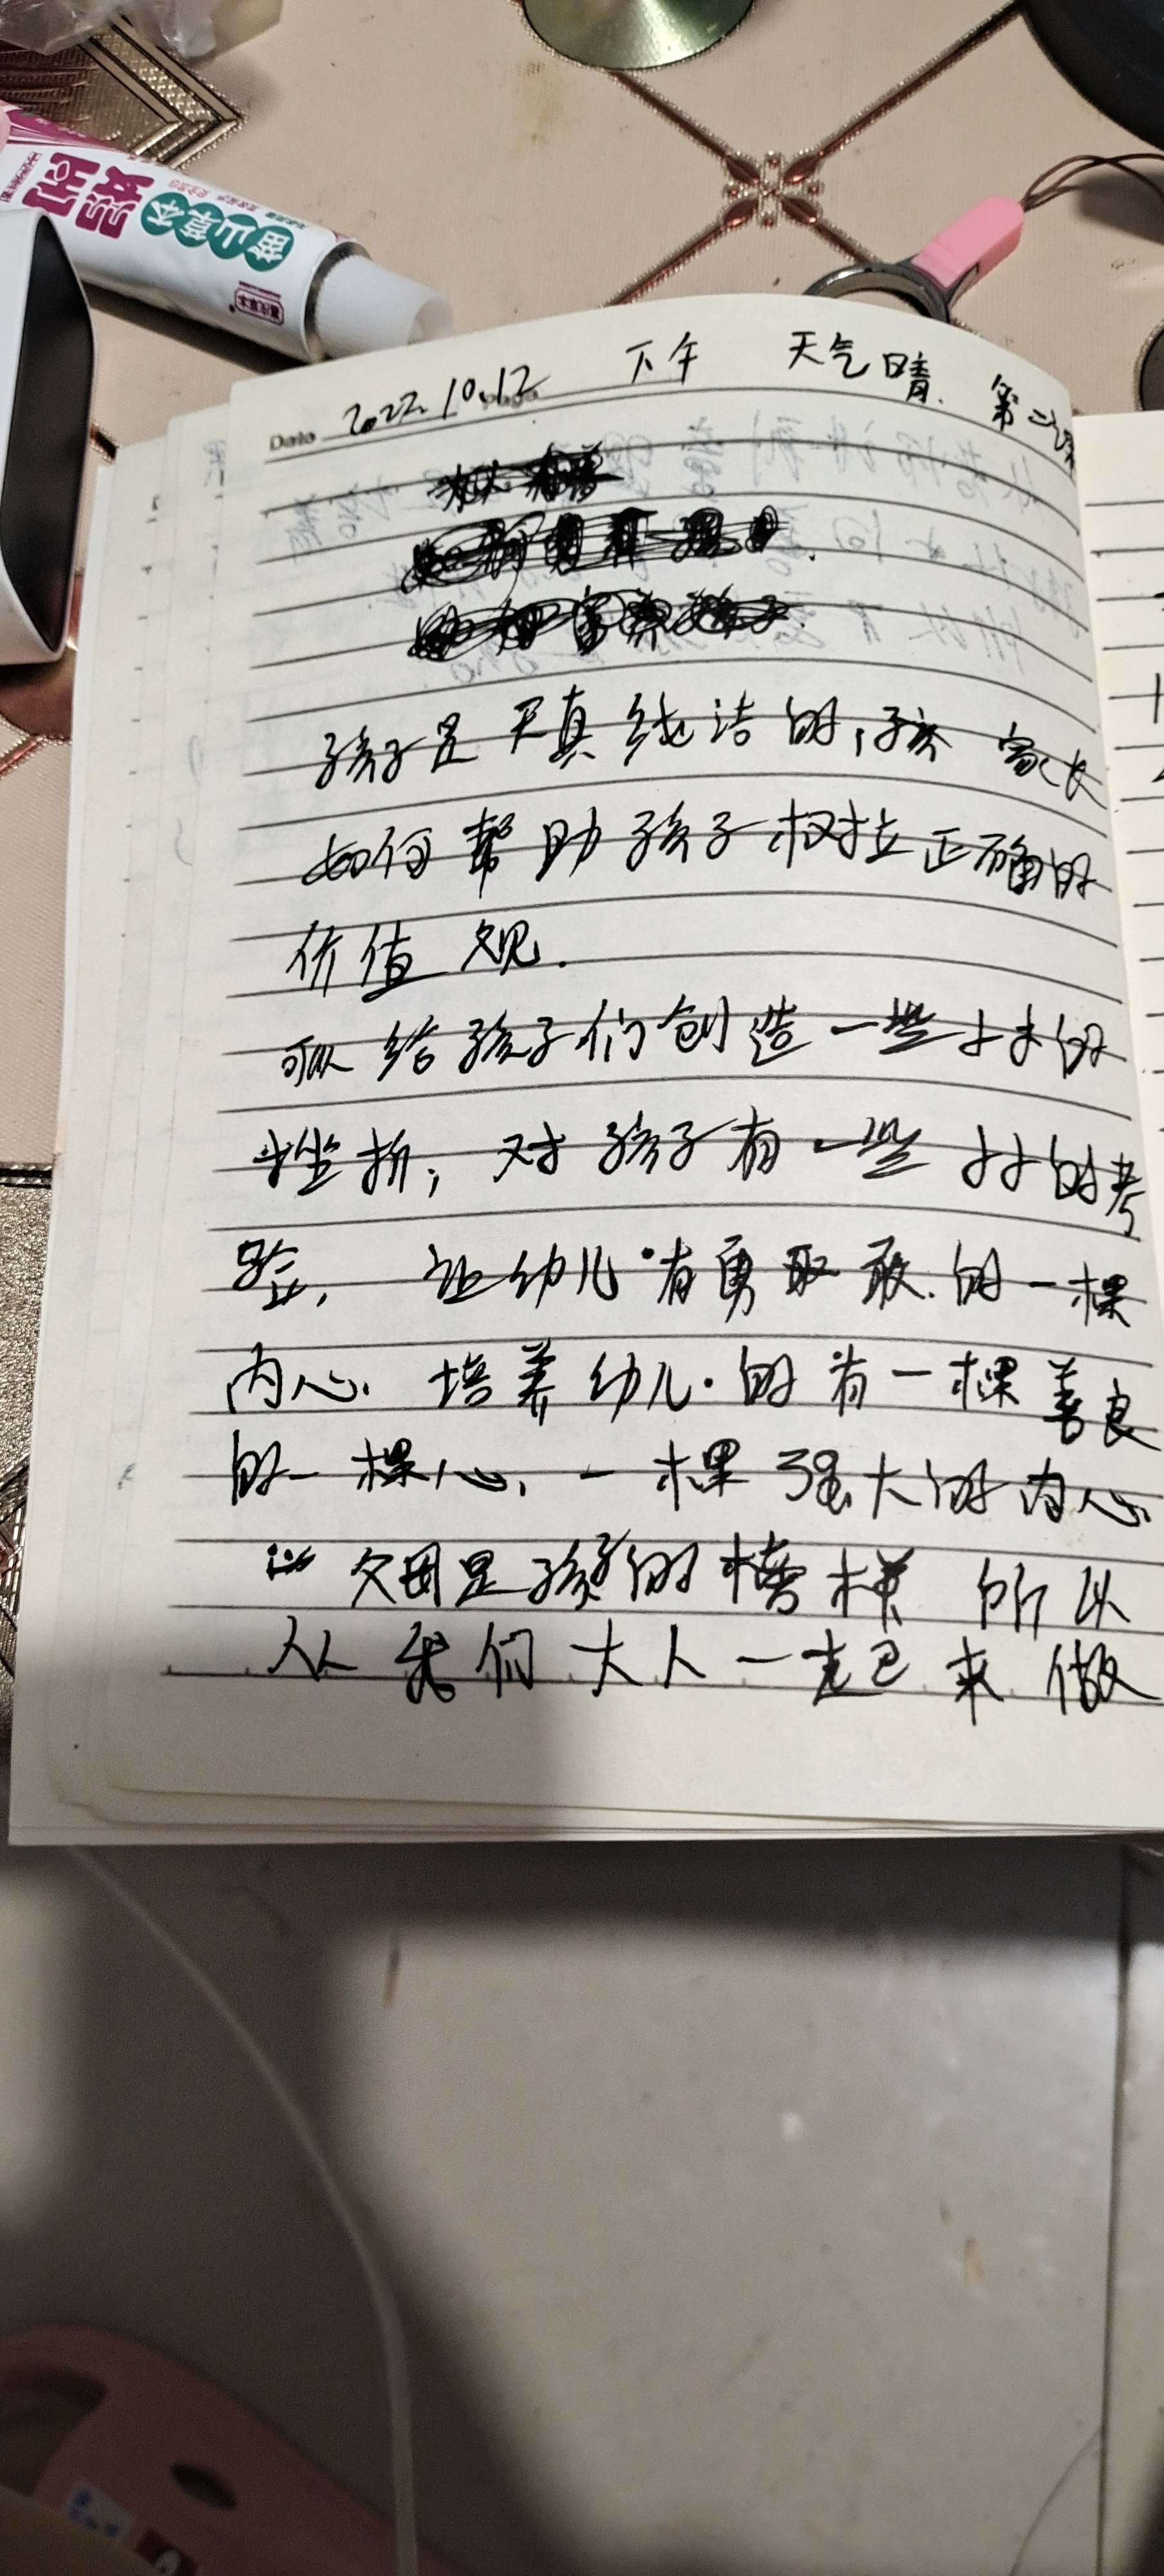 苗山草本
婴宝
Date 2022.10.12 下午 天气晴. 第二课
孩子是天真纯洁的,孩 家长
如何帮助孩子树立正确的
价值观.
可以给孩子们创造一些小小的
挫折,对孩子有一些小小的考
验, 让幼儿有勇敢.的一棵
内心. 培养幼儿.的有一棵善良
的一棵心,一棵强大的内心
父母是孩子的榜样 所以
从我们大人一起来做